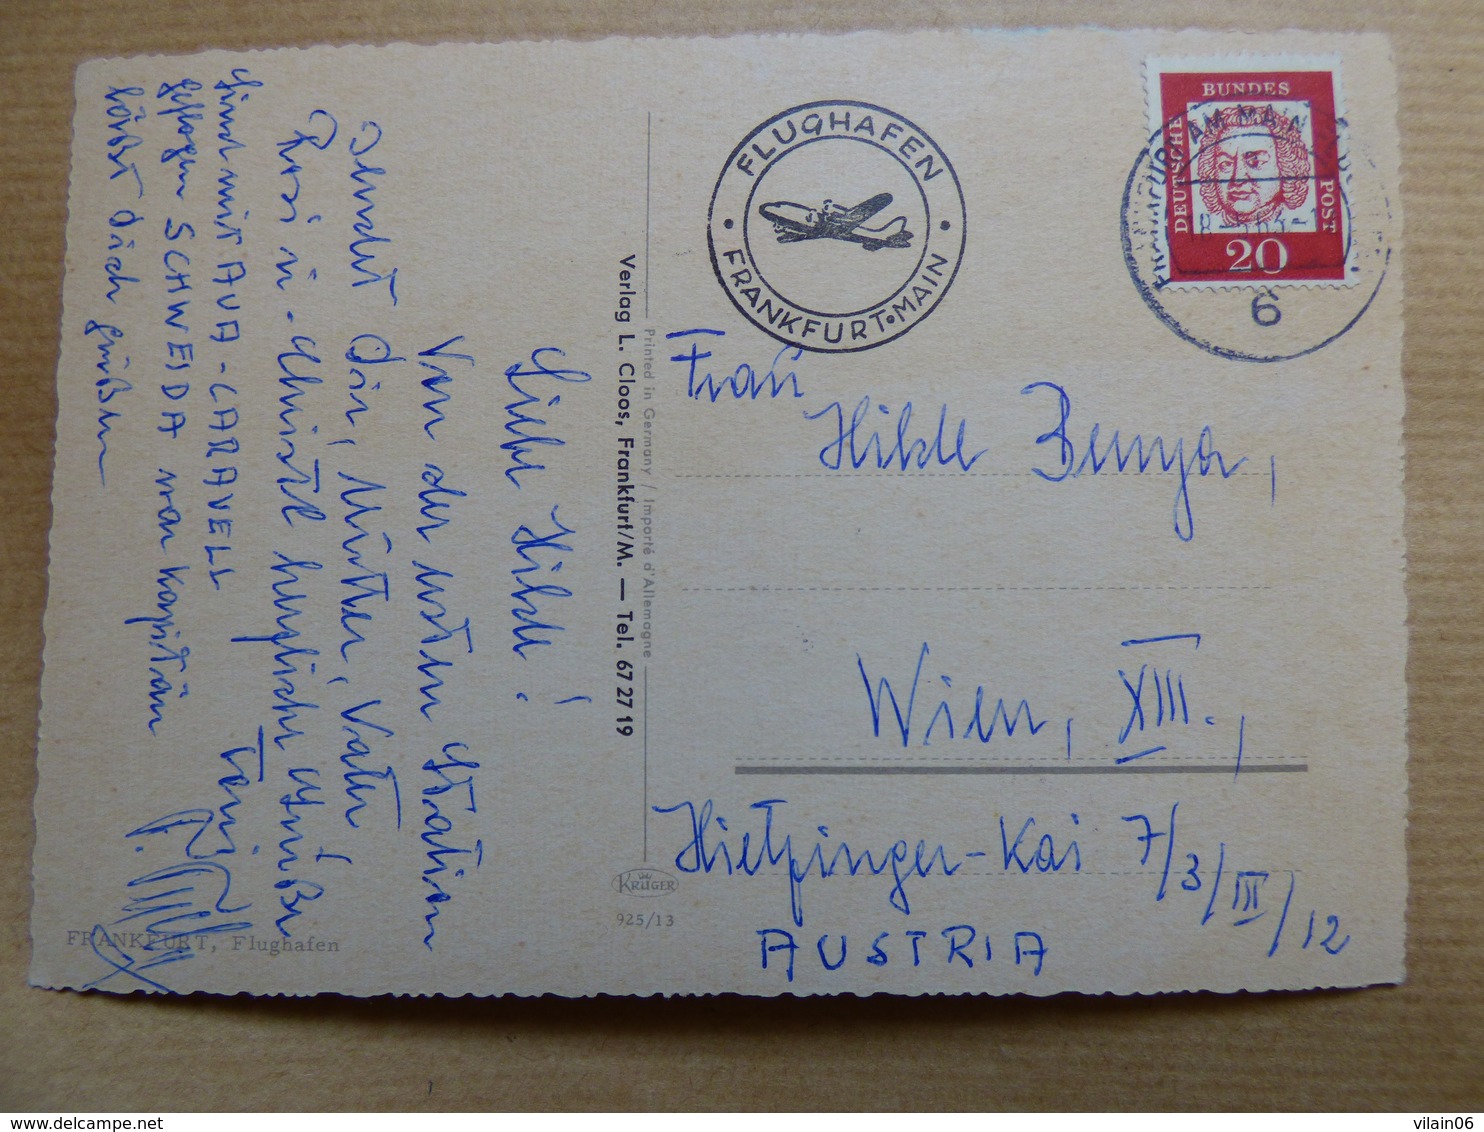 Liebe Hilde!
Von der ersten Station
sendet Dir, Mutter, Vater,
Rosi u. Christl herzliche Grüße
Toni
Sind mit AUA-CARAVELL
geflogen SCHWEIDA war Kapitän
läßt Dich grüßen
FRANKFURT, Flughafen
Verlag L. Cloos, Frankfurt/M. — Tel. 67 27 19
Printed in Germany / Importé d'Allemagne
KRÜGER
925/13
FLUGHAFEN
FRANKFURT•MAIN
DEUTSCHE
BUNDES
POST
20
FRANKFURT AM MAIN
6
Frau
Hilde Benya,
Wien, XIII.,
Hietzinger-Kai 7/3/III/12
AUSTRIA
vilain06